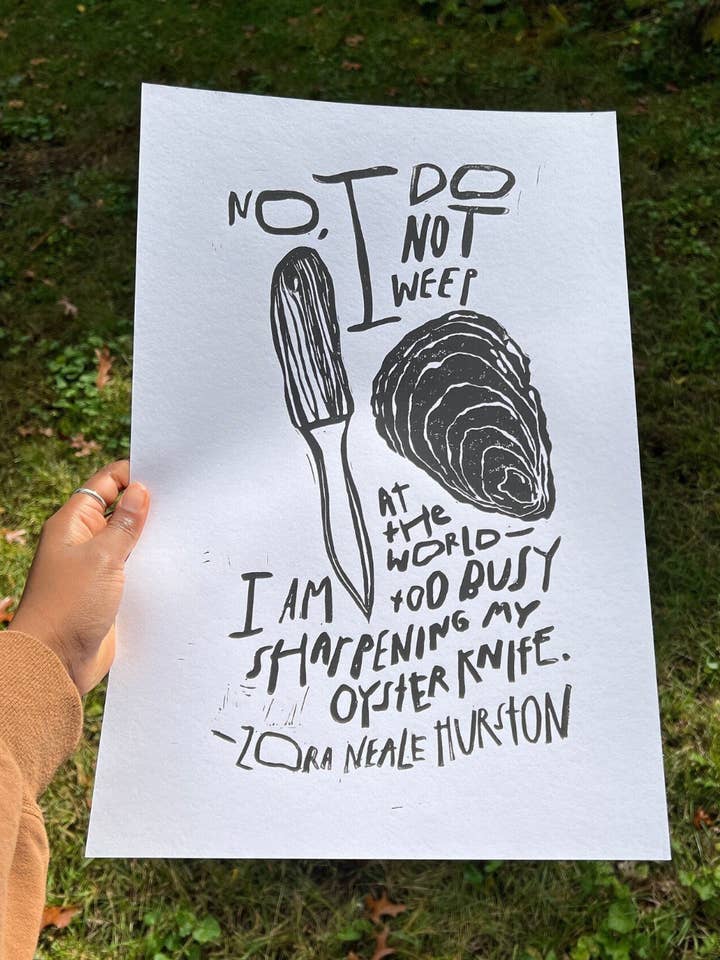 NO, I DO
NOT
WEEP
AT
tHe
WORLD—
I AM tOO BUSY
SHArPENING MY
OYStER KNIfE.
~ZORA NEALE HURStON